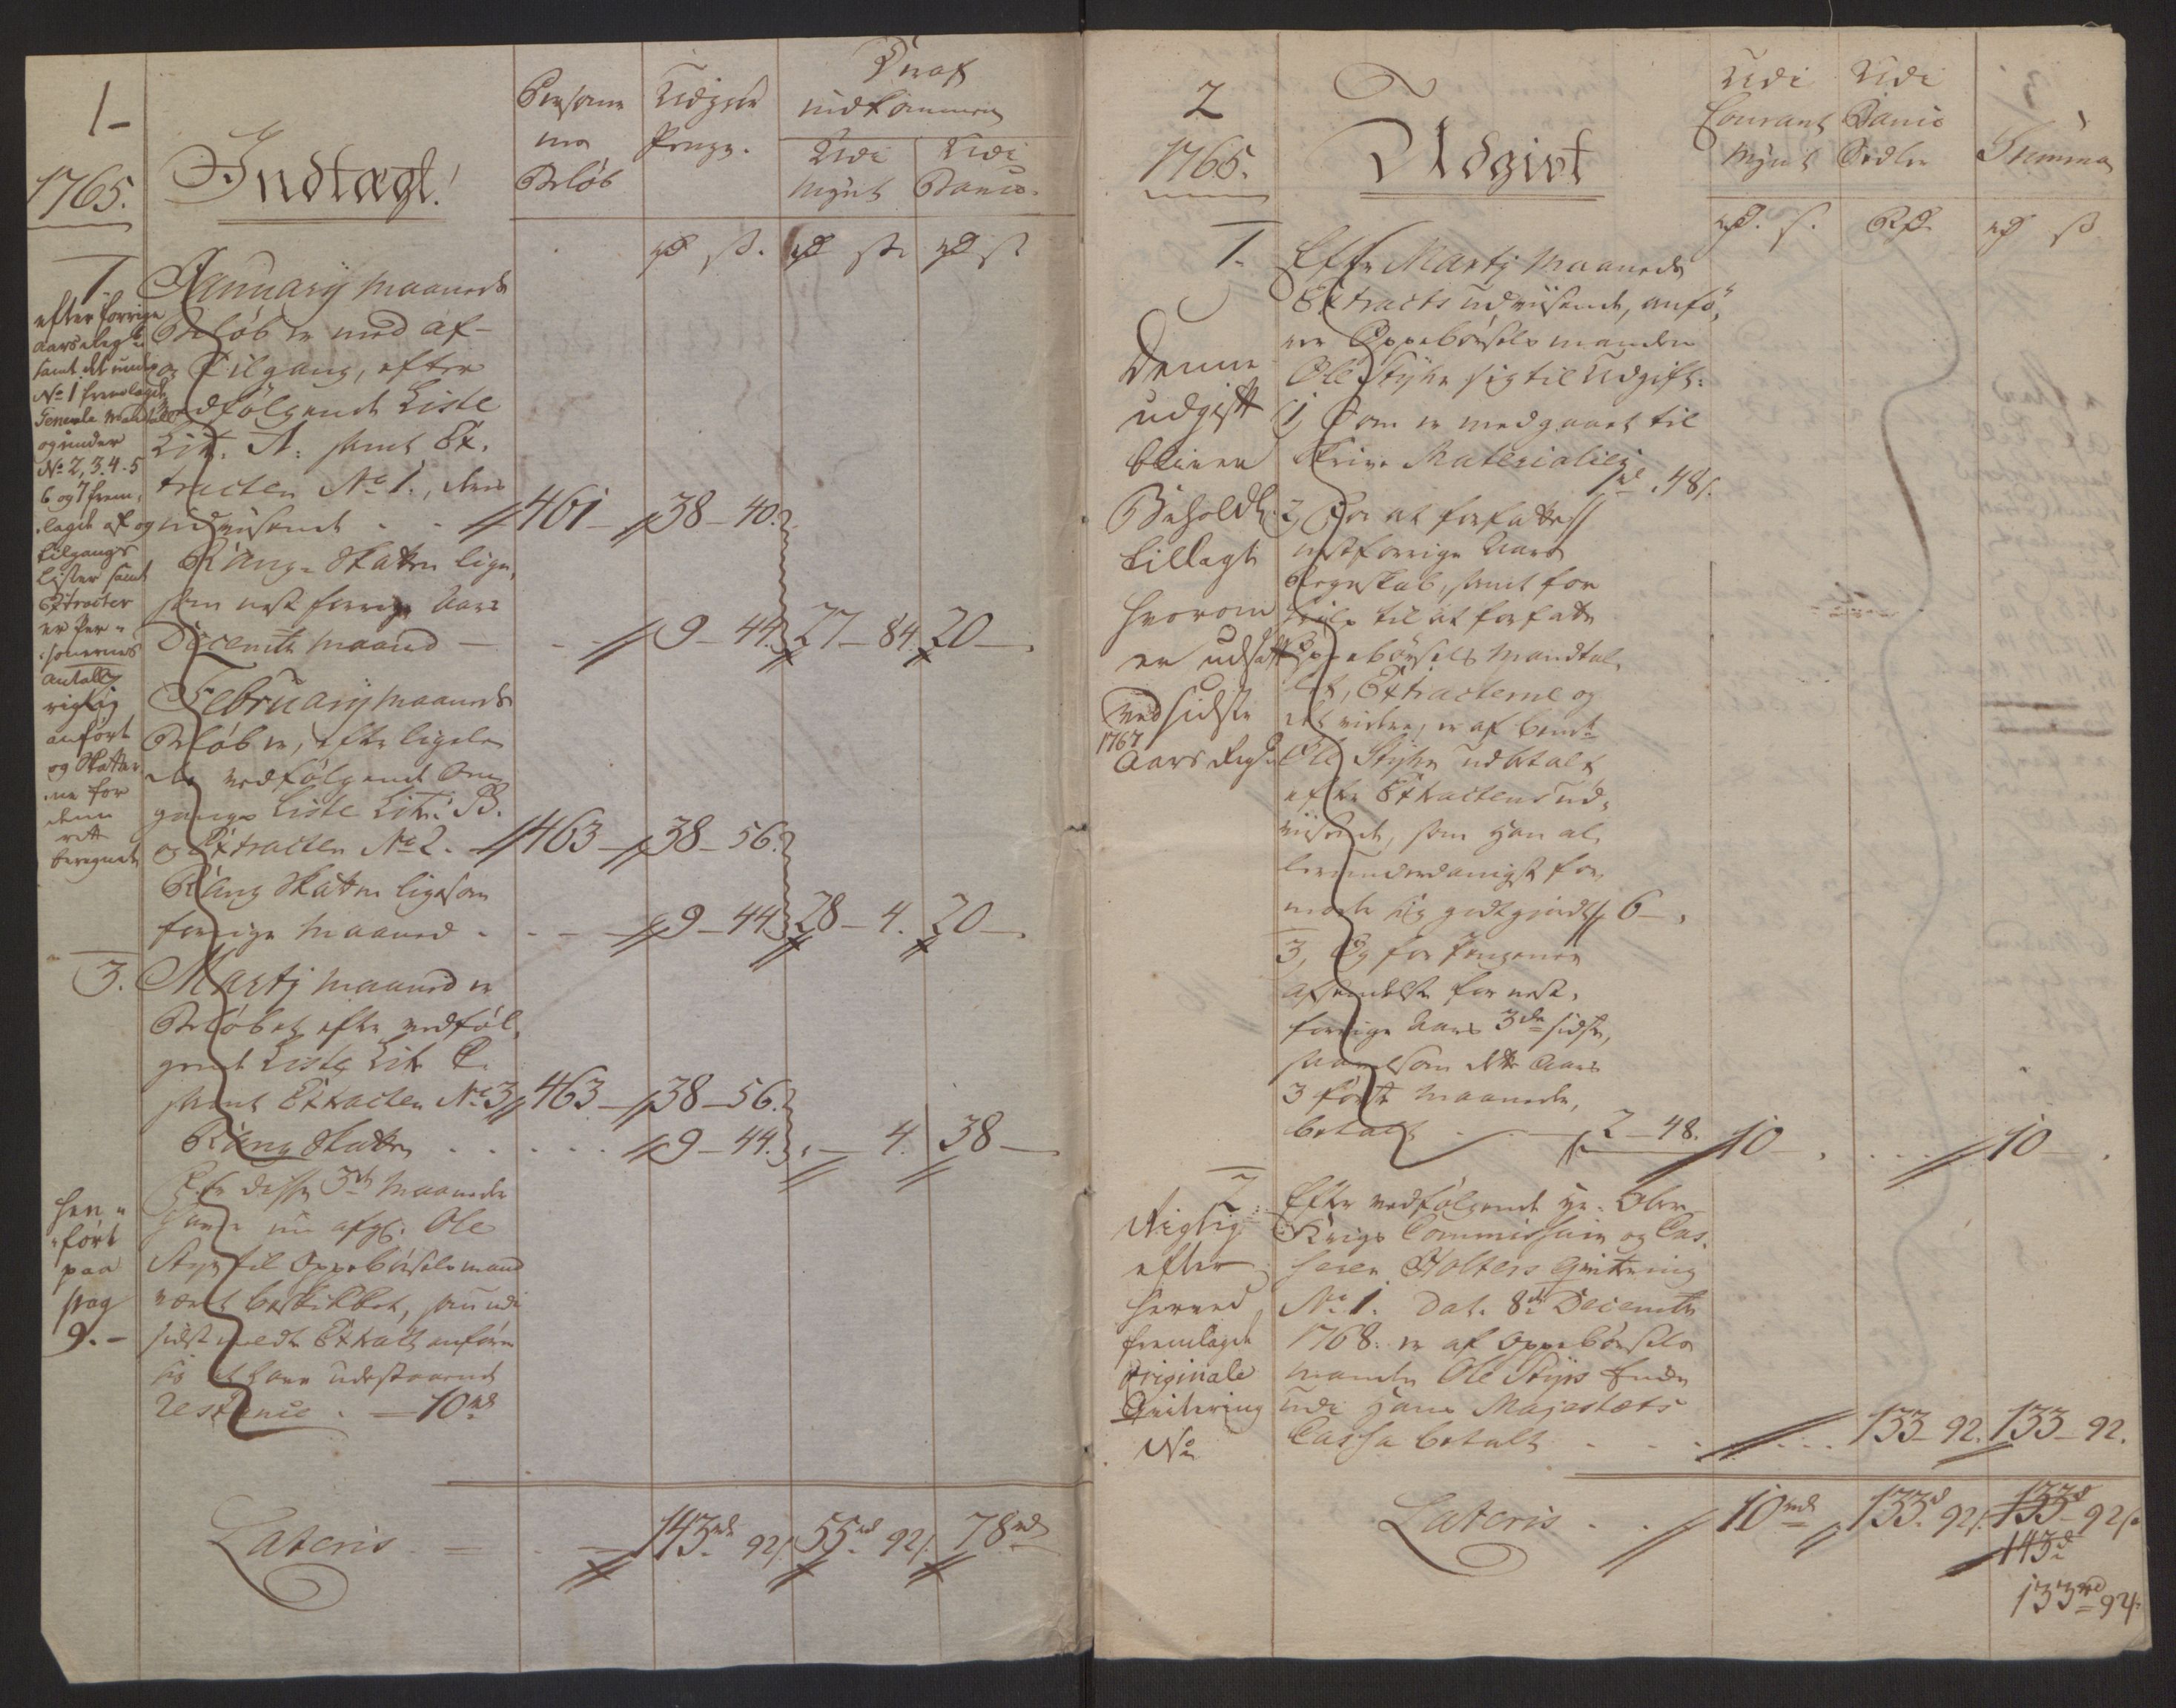 1-
1765.
Indtægt!
Personer
nes
Beløb
Udgiør
Penge.
Deraf
indkommen
Udi
Mynt
Udi
Banco.
rd s. rd s. rd s
1.
efter forrige
Aars aflegte
samt det under
No 1 fremlagde
Generale Mandtall
og under
No 2, 3. 4. 5
6 og 7 frem,
lagde af og
tilgangs
Lister samt
Extracter
er Per-
sonernes
Antall
rigtig
anført
og Skatter
ne for
dem
rett
beregnet
January Maaneds
Beløb er med af-
og Tilgang, efter
vedfølgende Liste
Lit. A: samt Ex,
tracten No 1., dens
udviisende - - 461 - 38 - 40.
Rang- Skatten lige,
som nest forrige Aars
Decembr Maaned - - 9 - 44. 27 - 84. 20 -.
February Maaneds
Beløb er, efter ligele-
des vedfølgende Om
gangs Liste Litr: B.
og Extracten No 2. - 463 - 38 - 56.
Rang Skatten ligesom
forrige Maaned - - - 9 - 44. 28 - 4. 20 -.
3.
Martj Maaned er
Beløbet efter vedføl,
gende Liste Litr C.
samt Extracten No 3 463 - 38 - 56.
Rang Skatten . . . . . 9 - 44. , - 4. 38 -
hen-
ført
paa
pag
9. -
For disse 3de Maaneder
haver nu afg: Ole
Styr til Oppebørselsmand
været beskikket, som udi
sidstmeldte Extract anfører
sig at have udestaaende
Restance . = 10 rd
Lateris - = - - 143 rd 92 s. 55 rd 92 s. 78 rd
2
1765.
Udgivt
Udi
Courant
Mynt
Udi
Banco
Sedler
Summa
rd. s. Rd. rd s
1.
Denne
udgift
bliver
Beholdn:
tillagt
hvorom
er udsatt
ved sidste
1767
Aars Regn:
Efter Martj Maaneds
Extracts udviisende, anfø,
rer Oppebørsels manden
Ole Styhr sig til Udgift:
1, Som er medgaaet til
Skrive Materialier 1 rd 48 s.
2, For at forfatte
nestforrige Aars
Regnskab, samt for
hielp til at forfatte
Oppebørsels Mandtal,
let, Extracterne og
det videre, er af bemte
Ole Styhr udbetalt
efter Extractens ud,
viisende, som han al,
lerunderdanigst for,
moder sig godtgiordt 6 - .
3, Og for Pengenes
Afsendelse for nest,
forrige Aars 3de sidste,
saavelsom dette Aars
3 første Maaneder,
betalt - - 2 - 48. 10 - . . . . 10 - .
2.
Rigtig
efter
herved
fremlagde
Originale
Qvitering
No
Efter vedfølgende Hr. Ober-
Krigs Commissair og Cas,
serer Holters Qvittering
No 1. Dat. 8de Decembr
1768. er af Oppebørsels
manden Ole Styhrs Enke
udi Hans Majestæts
Cassa betalt - - - . . . . 133 - 92. 133 - 92.
Lateris - - 10 rd 133 rd 92 s. 133 rd 92 s.
143 rd
133 rd 92